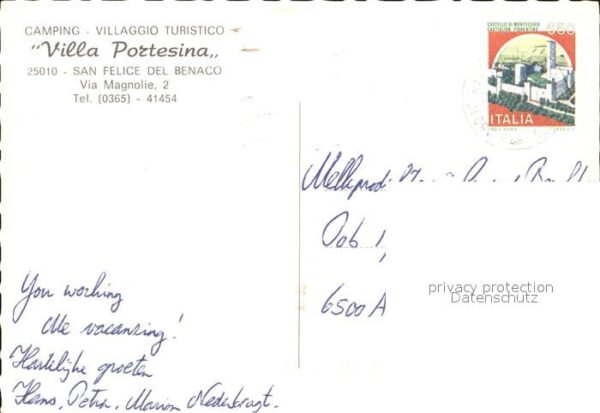 CAMPING - VILLAGGIO TURISTICO
"Villa Portesina„
25010 - SAN FELICE DEL BENACO
Via Magnolie, 2
Tel. (0365) - 41454
CASTELLO DI MONTECCHIO
CASTIGLION FIORENTINO
650
ITALIA
6500 A
privacy protection
Datenschutz
You working
Me vacancing!
Hartelijke groeten
Hans, Petra, Marion